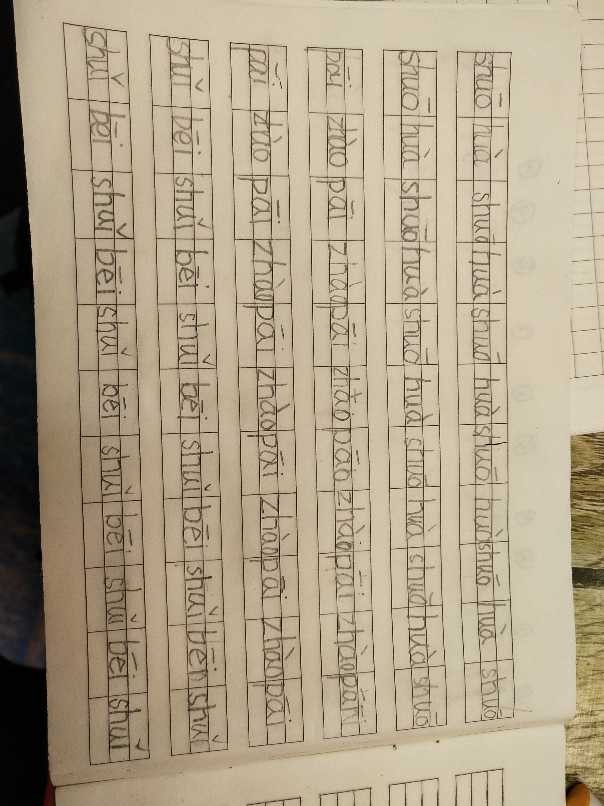 shuō huà shuō huà shuō huà shuō huà shuō huà shuō
shuō huà shuō huà shuō huà shuō huà shuō huà shuō
pāi zhào pāi zhào pāi zhào pāo zhào pāi zhào pāi
pāi zhào pāi zhào pāi zhào pāi zhào pāi zhào pāi
shuǐ bēi shuǐ bēi shuǐ bēi shuǐ bēi shuǐ bēi shuǐ
shuǐ bēi shuǐ bēi shuǐ bēi shuǐ bēi shuǐ bēi shuǐ